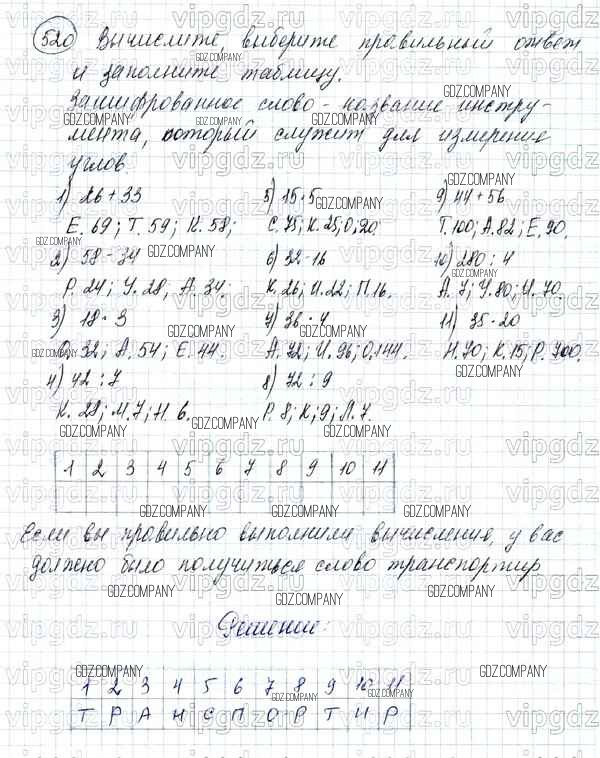 520 Вычислите, выберите правильный ответ
и заполните таблицу.
Зашифрованное слово - название инстру-
мента, который служит для измерения
углов.
1) 26 + 33
Е. 69; Т. 59; К. 58;
2) 58 - 34
Р. 24; У. 28; А. 34.
3) 18 · 3
О. 32; А. 54; Е. 44.
4) 42 : 7
К. 28; М. 7; Н. 6.
5) 15 · 5
С. 75; К. 25; О. 20.
6) 32 - 16
К. 26; И. 22; П. 16.
7) 36 · 4
А. 72; И. 96; О. 144.
8) 72 : 9
Р. 8; К. 9; Л. 7.
9) 44 + 56
Т. 100; А. 82; Е. 90.
10) 280 : 4
А. 7; У. 80; И. 70.
11) 35 · 20
Н. 70; К. 15; Р. 700.
1 2 3 4 5 6 7 8 9 10 11
Если вы правильно выполнили вычисления, у вас
должно было получиться слово транспортир
Решение:
1 2 3 4 5 6 7 8 9 10 11
Т Р А Н С П О Р Т И Р
vipgdz.ru
GDZ.COMPANY